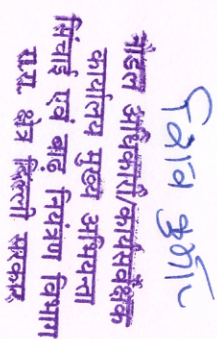 नोडल अधिकारी/कार्यपर्यवेक्षक
कार्यालय मुख्य अभियन्ता
सिंचाई एवं बाढ़ नियंत्रण विभाग
रा.रा. क्षेत्र दिल्ली सरकार